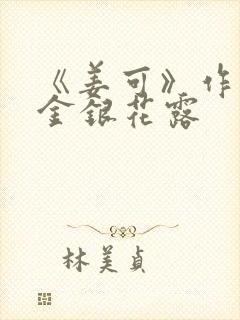 《姜可》作
金银花露
林美贞